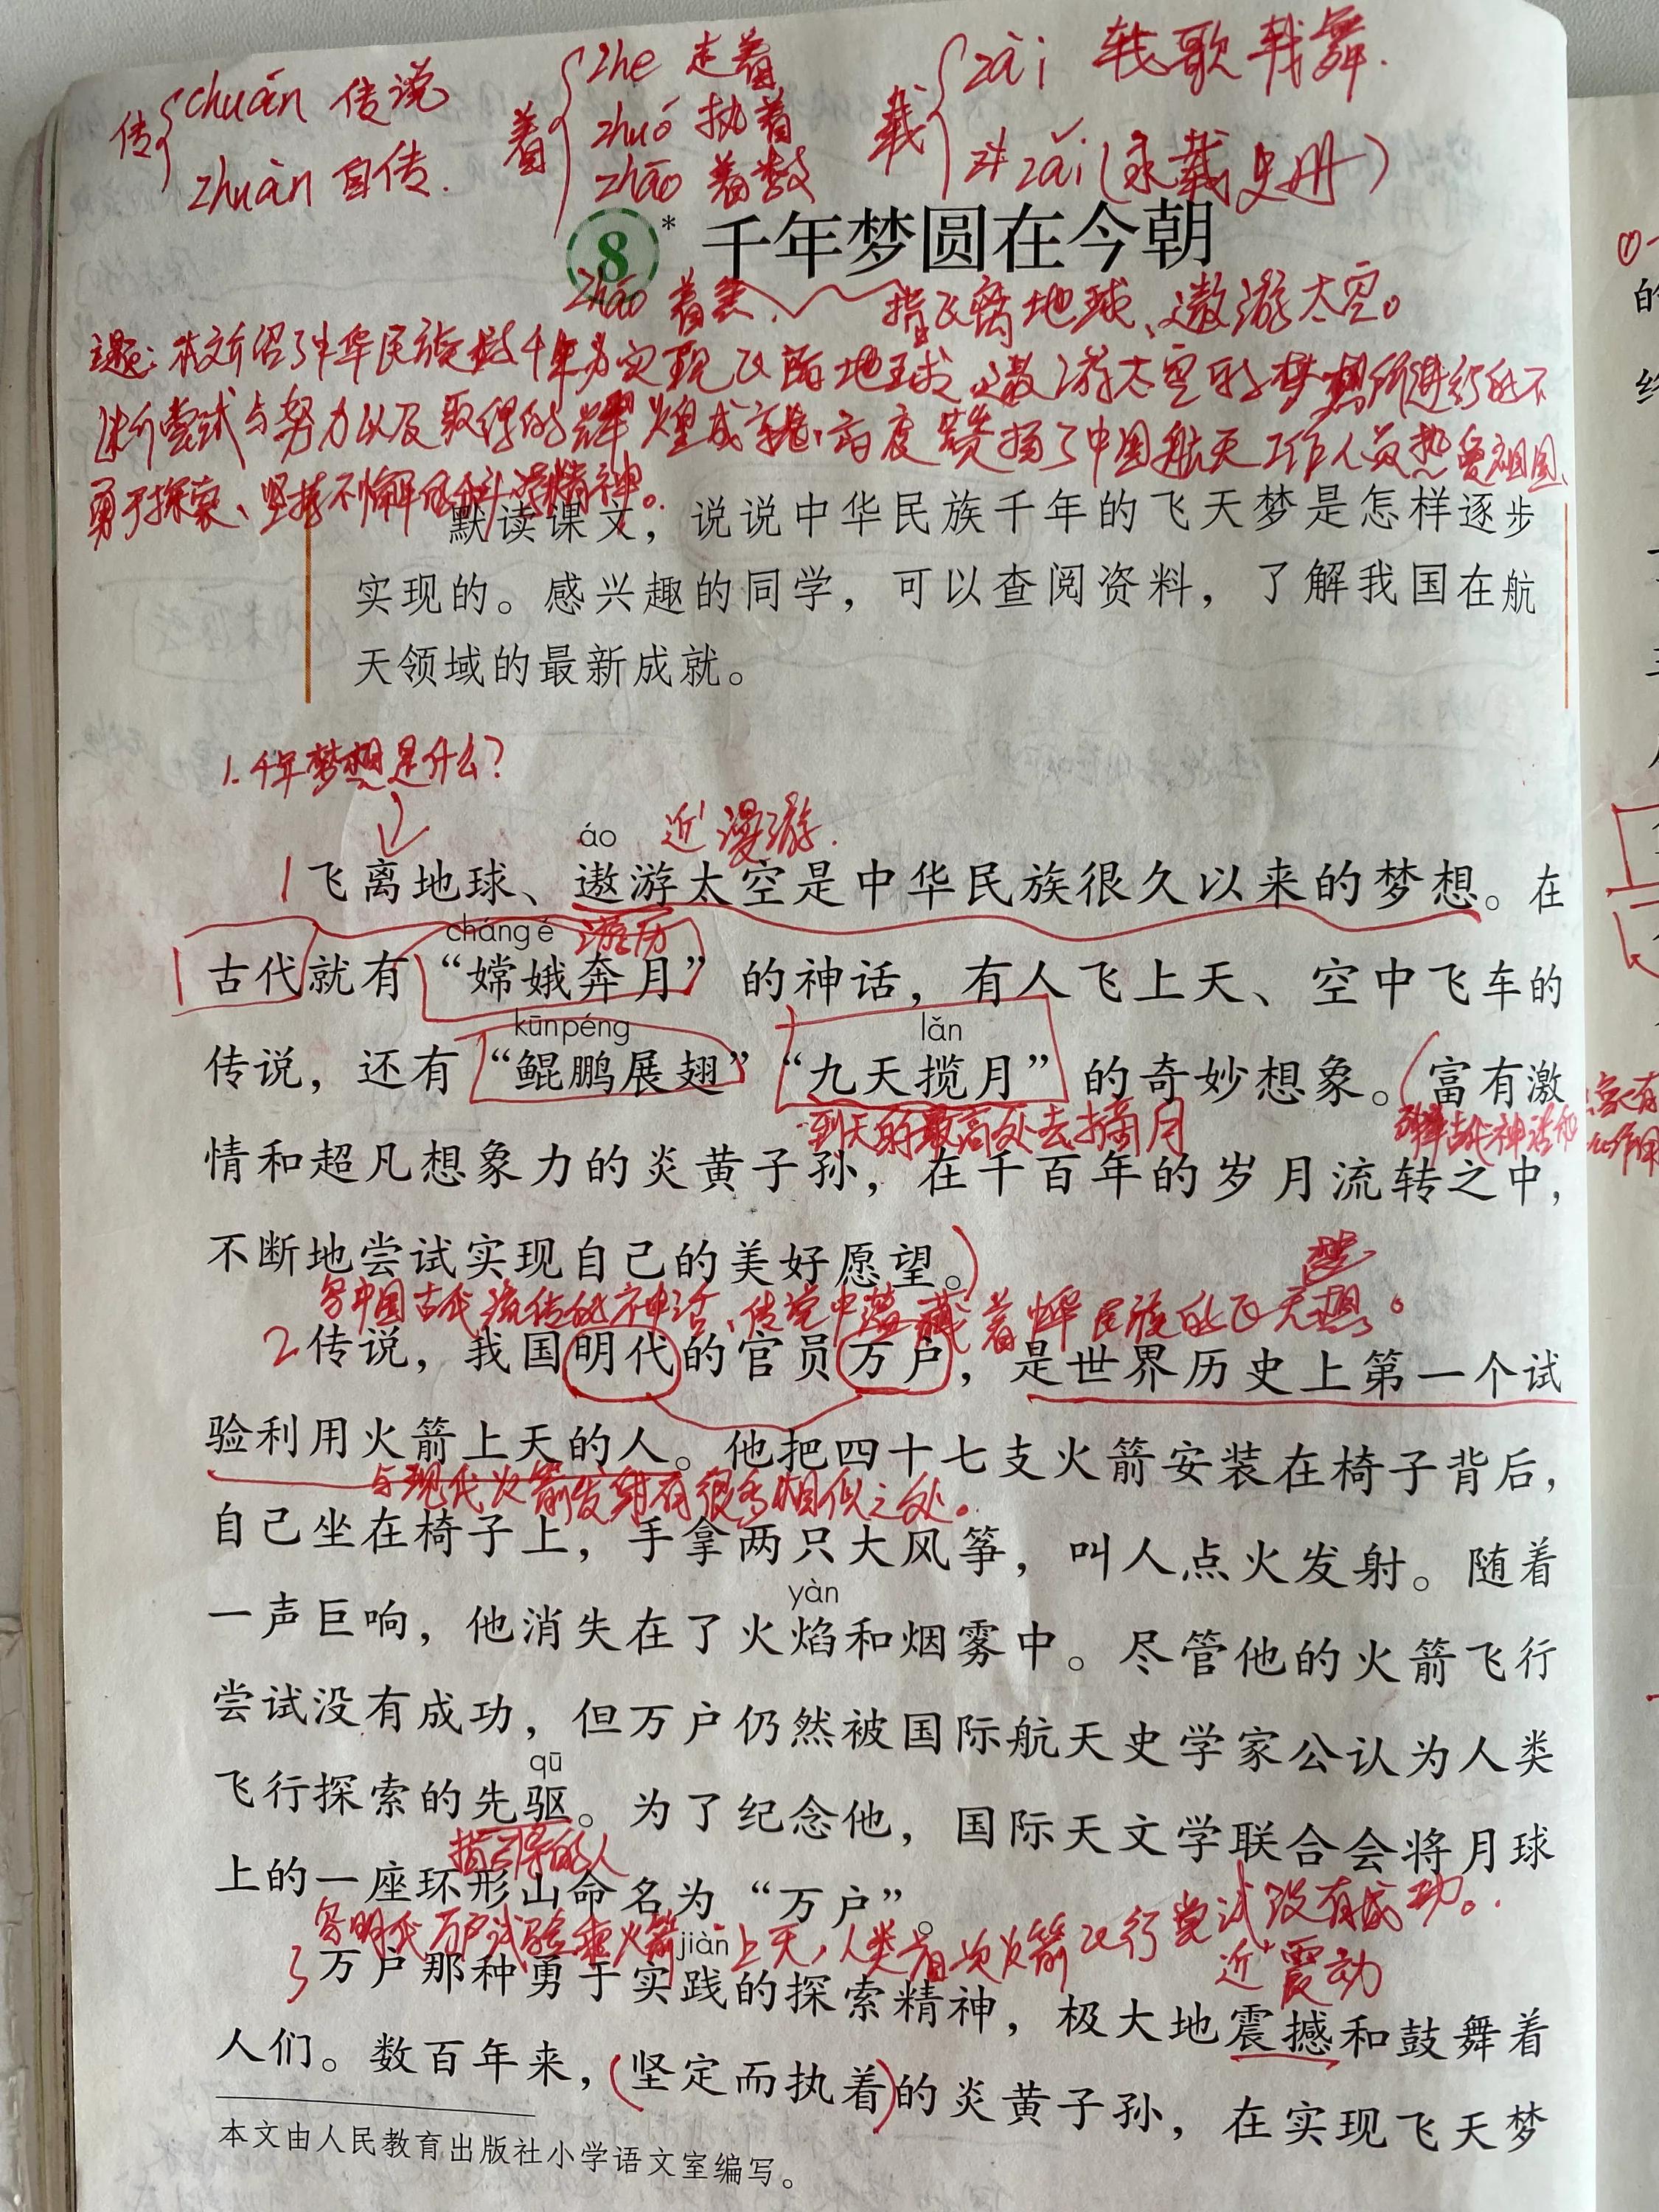 传 chuán 传说
zhuàn 自传.
着 zhe 走着
zhuó 执着
zhāo 着数
载 zài 载歌载舞.
zǎi(永载史册)
8* 千年梦圆在今朝
zháo 着急、
指飞离地球、遨游太空。
主题:本文介绍了中华民族数千年为实现飞离地球、遨游太空的梦想所进行的不
断尝试与努力以及取得的辉煌成就,高度赞扬了中国航天工作人员热爱祖国、
勇于探索、坚持不懈的奋斗精神。
默读课文,说说中华民族千年的飞天梦是怎样逐步
实现的。感兴趣的同学,可以查阅资料,了解我国在航
天领域的最新成就。
1.千年梦想是什么?
áo 近:漫游.
1 飞离地球、遨游太空是中华民族很久以来的梦想。在
cháng é 游历
古代就有“嫦娥奔月”的神话,有人飞上天、空中飞车的
kūn péng lǎn
传说,还有“鲲鹏展翅”“九天揽月”的奇妙想象。富有激
到天的最高处去摘月
情和超凡想象力的炎黄子孙,在千百年的岁月流转之中,
不断地尝试实现自己的美好愿望。
中国古代流传的神话、传说中蕴藏着中华民族的飞天梦想。
2 传说,我国明代的官员万户,是世界历史上第一个试
验利用火箭上天的人。他把四十七支火箭安装在椅子背后,
与现代火箭发射有很多相似之处。
自己坐在椅子上,手拿两只大风筝,叫人点火发射。随着
yàn
一声巨响,他消失在了火焰和烟雾中。尽管他的火箭飞行
尝试没有成功,但万户仍然被国际航天史学家公认为人类
qū
飞行探索的先驱。为了纪念他,国际天文学联合会将月球
指引导的人
上的一座环形山命名为“万户”。
明代万户试验乘火箭上天,人类首次火箭飞行尝试没有成功。
jiàn 近:震动
3 万户那种勇于实践的探索精神,极大地震撼和鼓舞着
人们。数百年来,(坚定而执着)的炎黄子孙,在实现飞天梦
本文由人民教育出版社小学语文室编写。